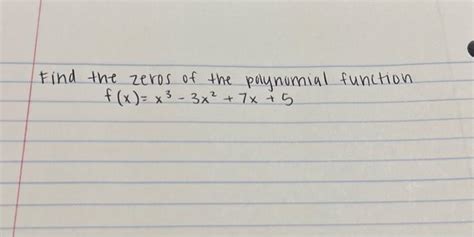 Find the zeros of the polynomial function
f(x)= x³ - 3x² + 7x + 5